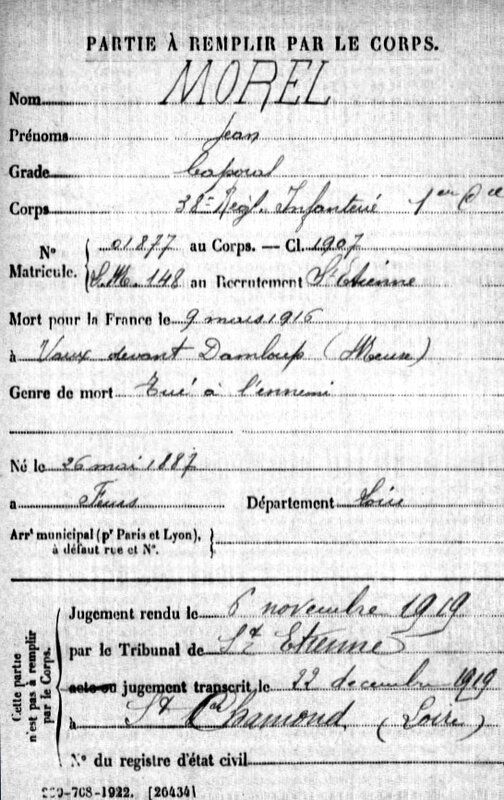 PARTIE À REMPLIR PAR LE CORPS.
Nom MOREL
Prénoms Jean
Grade Caporal
Corps 38e Régt. Infanterie 1ere Cie
No Matricule. { 01877 au Corps. — Cl. 1907
S.M. 148 au Recrutement St Etienne
Mort pour la France le 9 mars 1916
à Vaux devant Damloup (Meuse)
Genre de mort Tué à l'ennemi
Né le 26 mai 1887
a Feurs Département Loire
Arrt municipal (pr Paris et Lyon),
à défaut rue et No. }
Cette partie n'est pas à remplir par le Corps.
Jugement rendu le 6 novembre 1919
par le Tribunal de St Etienne
acte ou jugement transcrit le 22 decembre 1919
à St Chamond (Loire)
No du registre d'état civil
-708-1922. [26434]